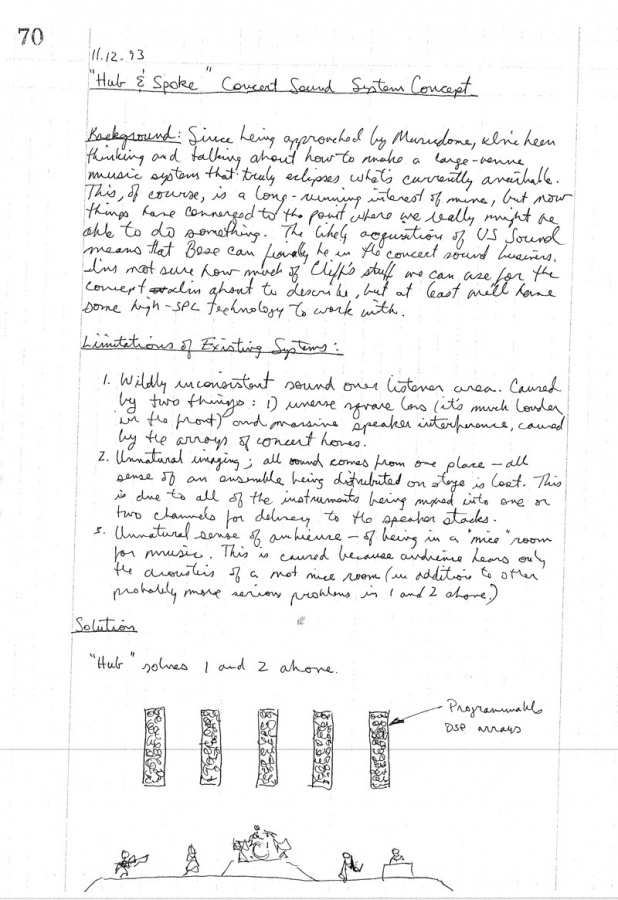 70
11.12.93
"Hub & Spoke" Concert Sound System Concept
Background: Since being approached by Musicdome, I've been
thinking and talking about how to make a large-venue
music system that truly eclipses what's currently available.
This, of course, is a long-running interest of mine, but now
things have converged to the point where we really might be
able to do something. The likely acquisition of US Sound
means that Bose can finally be in the concert sound business.
I'm not sure how much of Cliff's stuff we can use for the
concept I'm about to describe, but at least we'll have
some high-SPL technology to work with.
Limitations of Existing Systems:
1. Wildly inconsistent sound over listener area. Caused
by two things: 1) inverse square loss (it's much louder
in the front) and massive speaker interference, caused
by the arrays of concert horns.
2. Unnatural imaging; all sound comes from one place - all
sense of an ensemble being distributed on stage is lost. This
is due to all of the instruments being mixed into one or
two channels for delivery to the speaker stacks.
3. Unnatural sense of ambience - of being in a "nice" room
for music. This is caused because audience hears only
the acoustics of a not nice room (in addition to other
probably more serious problems in 1 and 2 above.)
Solution
"Hub" solves 1 and 2 above.
Programmable
DSP arrays